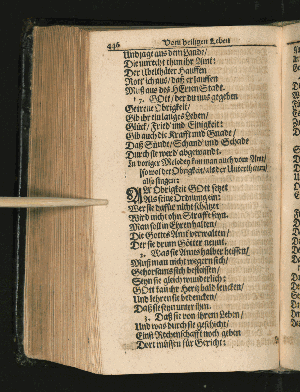 446 Vom heiligen Leben
Und jage aus dem Lande/
Die unrecht thun ihr Amt:
Der Ubelthäter Hauffen
Rott' ich aus/ daß er lauffen
Muß aus des HErren Stadt.
7. GOtt/ der du uns gegeben
Getreue Obrigkeit/
Gib ihr ein langes Leben/
Glück/ Fried' und Einigkeit:
Gib auch die Krafft und Gnade/
Daß Sünde/ Schand' und Schade
Durch sie werd' abgewandt.
In voriger Melodey kan man auch vom Amt/
so wol der Obrigkeit/ als der Unterthanen/
also singen:
Obrigkeit GOtt setzet
Als seine Ordnung ein:
Wer sie dafür nicht schätzet
Wird nicht ohn Straffe seyn.
Man soll in Ehren halten/
Die Gottes Amt verwalten/
Der sie drum Götter nennt.
2. Was sie Amts halber heissen/
Muß man nicht wegern sich/
Gehorsams sich befleissen/
Seyn sie gleich wunderlich:
GOtt kan ihr Hertz bald lencken/
Und lehren sie bedencken/
Daß sie seyn unter ihm.
3. Daß sie von ihrem Leben/
Und was durch sie geschicht/
Einst Rechenschafft noch geben
Dort müssen für Gericht: